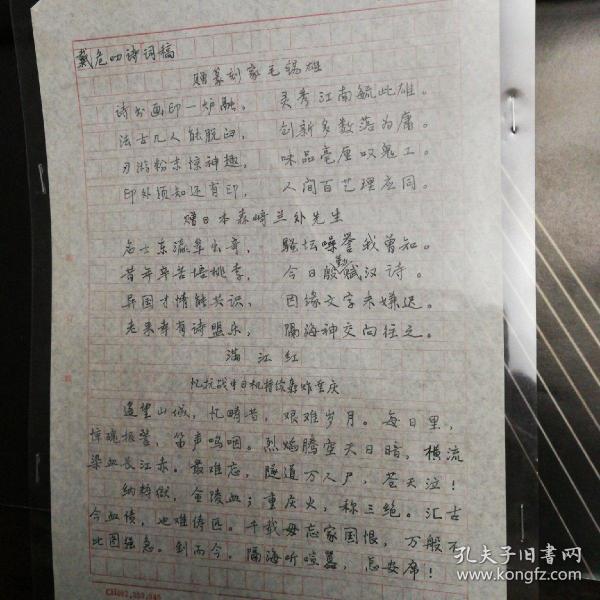 戴危叨诗词稿
赠篆刻家毛锡雄
诗书画印一炉融，灵秀江南毓此雄。
法古几人能脱臼，创新多数落为庸。
刃游粉末惊神趣，味品毫厘叹鬼工。
印外须知还有印，人间百艺理应同。
赠日本森崎兰外先生
名士东瀛早出奇，骚坛噪誉我曾知。
昔年辛苦培桃李，今日殷勤赋汉诗。
异国才情能共识，因缘文字未嫌迟。
老来幸有诗盟乐，隔海神交向往之。
满江红
忆抗战中日机持续轰炸重庆
遥望山城，忆畴昔，艰难岁月。每日里，
惊魂报警，笛声呜咽。烈焰腾空天日暗，横流
染血长江赤。最难忘，隧道万人尸，苍天泣！
纳粹狱，金陵血；重庆火，称三绝。汇古
今血债，也难俦匹。千载毋忘家国恨，万般不
比图强急。到而今，隔海听喧嚣，怎安席！
孔夫子旧书网
www.kongfz.com